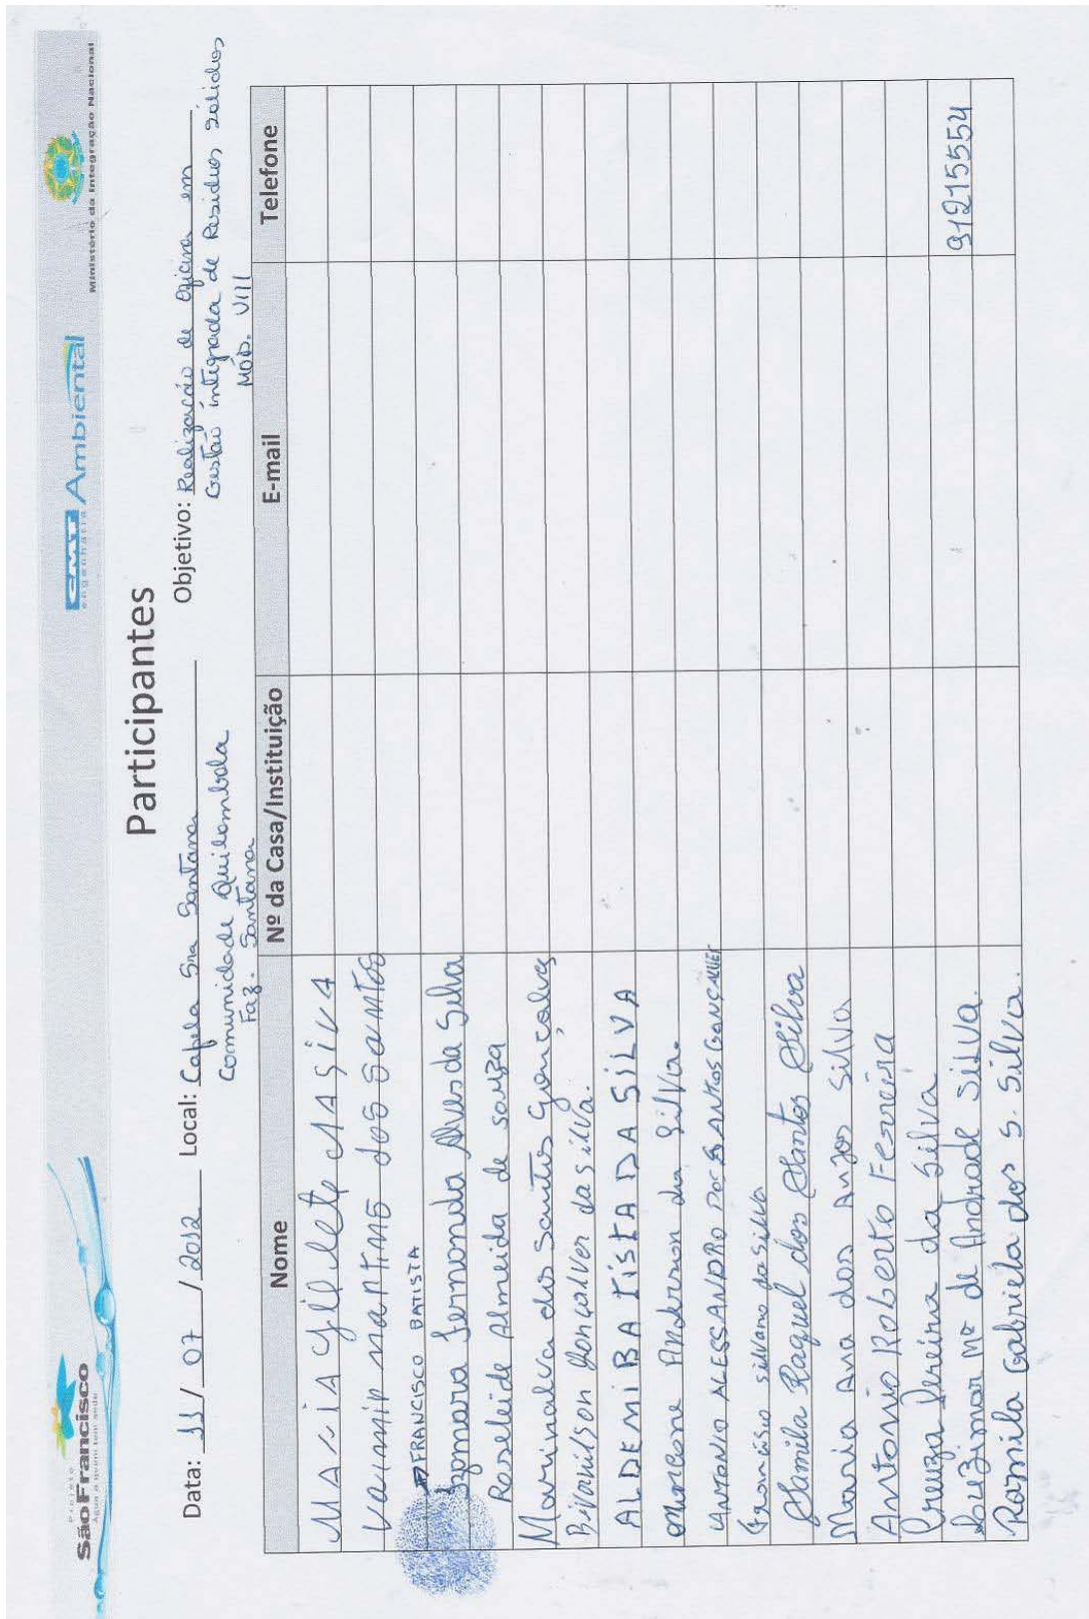 Projeto
São Francisco
Água a quem tem sede
CMT Ambiental
engenharia
Ministério da Integração Nacional
Participantes
Data: 11 / 07 / 2012 Local: Capela Sra Santana Objetivo: Realização de oficina em
Comunidade Quilombola Gestão integrada de Residuos sólidos
Faz. Santana MÓD. VIII
Nome Nº da Casa/Instituição E-mail Telefone
MARIA Gillete dA SiLVA
Valmir martins dos santos
FRANCISCO BATISTA
Izamara Fernanda Alves da Silva
Roseleide Almeida de souza
Marinalva dos Santos Gonçalves
Rivanilson Gonçalves da silva.
ALDEMI BATISTA DA SILVA
Anderson da Silva.
ANTONIO ALESSANDRO DOS SANTOS GONÇALVES
Francisco silvano da silva
Samila Raquel dos Santos Silva
Maria Ana dos Anjos Silva
Antonio Roberto Ferreira
Creuza Pereira da Silva
Luzimar Mª de Andrade Silva. 91215554
Romila Gabriela dos S. Silva.